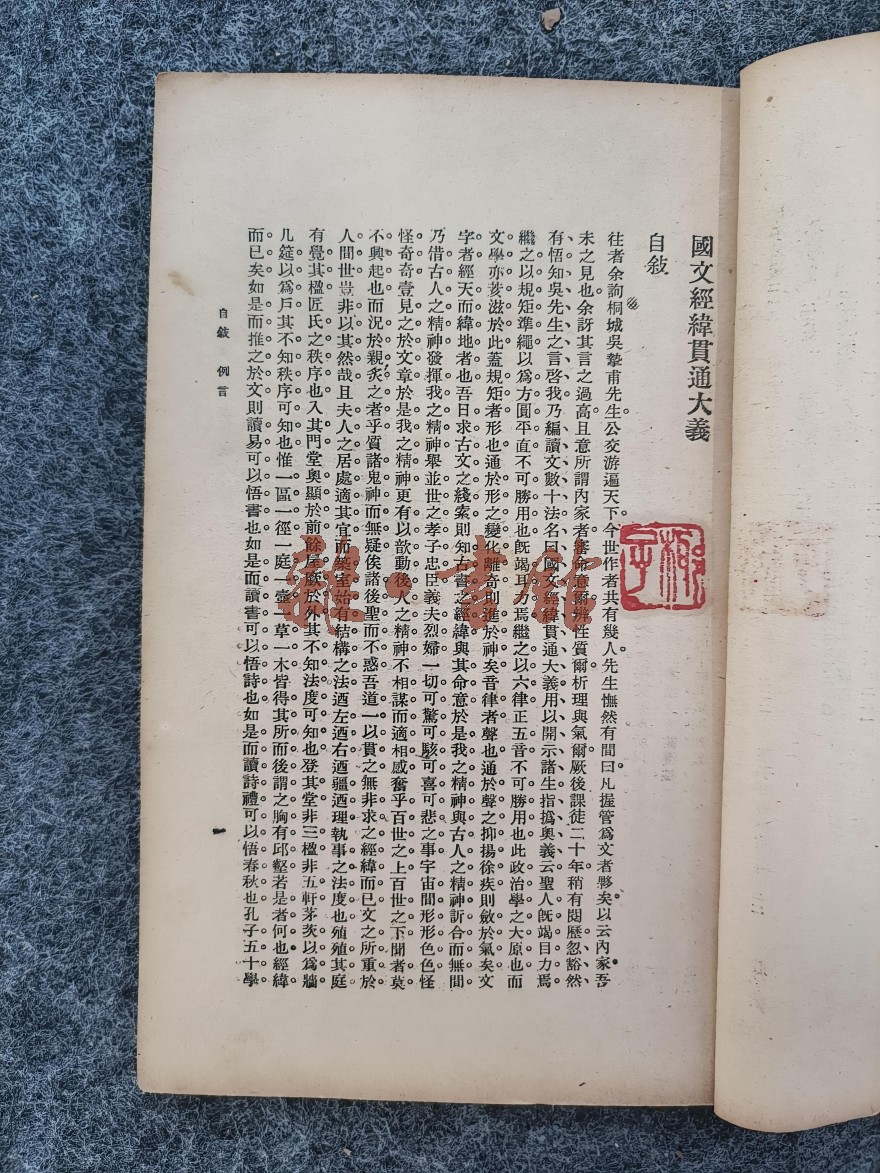 國文經緯貫通大義
自敍
往者余詢桐城吳摯甫先生公交游遍天下今世作者共有幾人先生憮然有間曰凡握管爲文者夥矣以云內家吾
未之見也余訝其言之過高且意所謂內家者審命意爾辨性質爾析理與氣爾厥後課徒二十年稍有閱歷忽豁然
有悟知吳先生之言啓我乃編讀文數十法名曰國文經緯貫通大義用以開示諸生指爲奧義云聖人旣竭目力焉
繼之以規矩準繩以爲方圓平直不可勝用也旣竭耳力焉繼之以六律正五音不可勝用也此政治學之大原也而
文學亦荄滋於此蓋規矩者形也通於形之變化離奇則進於神矣音律者聲也通於聲之抑揚徐疾則斂於氣矣文
字者經天而緯地者也吾日求古文之綫索則知古書之經緯與其命意於是我之精神與古人之精神訢合而無間
乃借古人之精神發揮我之精神舉並世之孝子忠臣義夫烈婦一切可驚可駭可喜可悲之事宇宙間形形色色怪
怪奇奇壹見之於文章於是我之精神更有以歆動後人之精神不相謀而適相感奮乎百世之上百世之下聞者莫
不興起也而況於親炙之者乎質諸鬼神而無疑俟諸後聖而不惑吾道一以貫之無非求之經緯而已文之所重於
人間世豈非以其然哉且夫人之居處適其宜而築室始有結構之法迺左迺右迺疆迺理執事之法度也殖殖其庭
有覺其楹匠氏之秩序也入其門堂奧顯於前餘屋廠於外其不知法度可知也登其堂非三楹非五軒茅茨以爲牆
几筵以爲戶其不知秩序可知也惟一區一徑一庭一壺一草一木皆得其所而後謂之胸有邱壑若是者何也經緯
而已矣如是而推之於文則讀易可以悟書也如是而讀書可以悟詩也如是而讀詩禮可以悟春秋也孔子五十學
自敍 例言
雜·書館